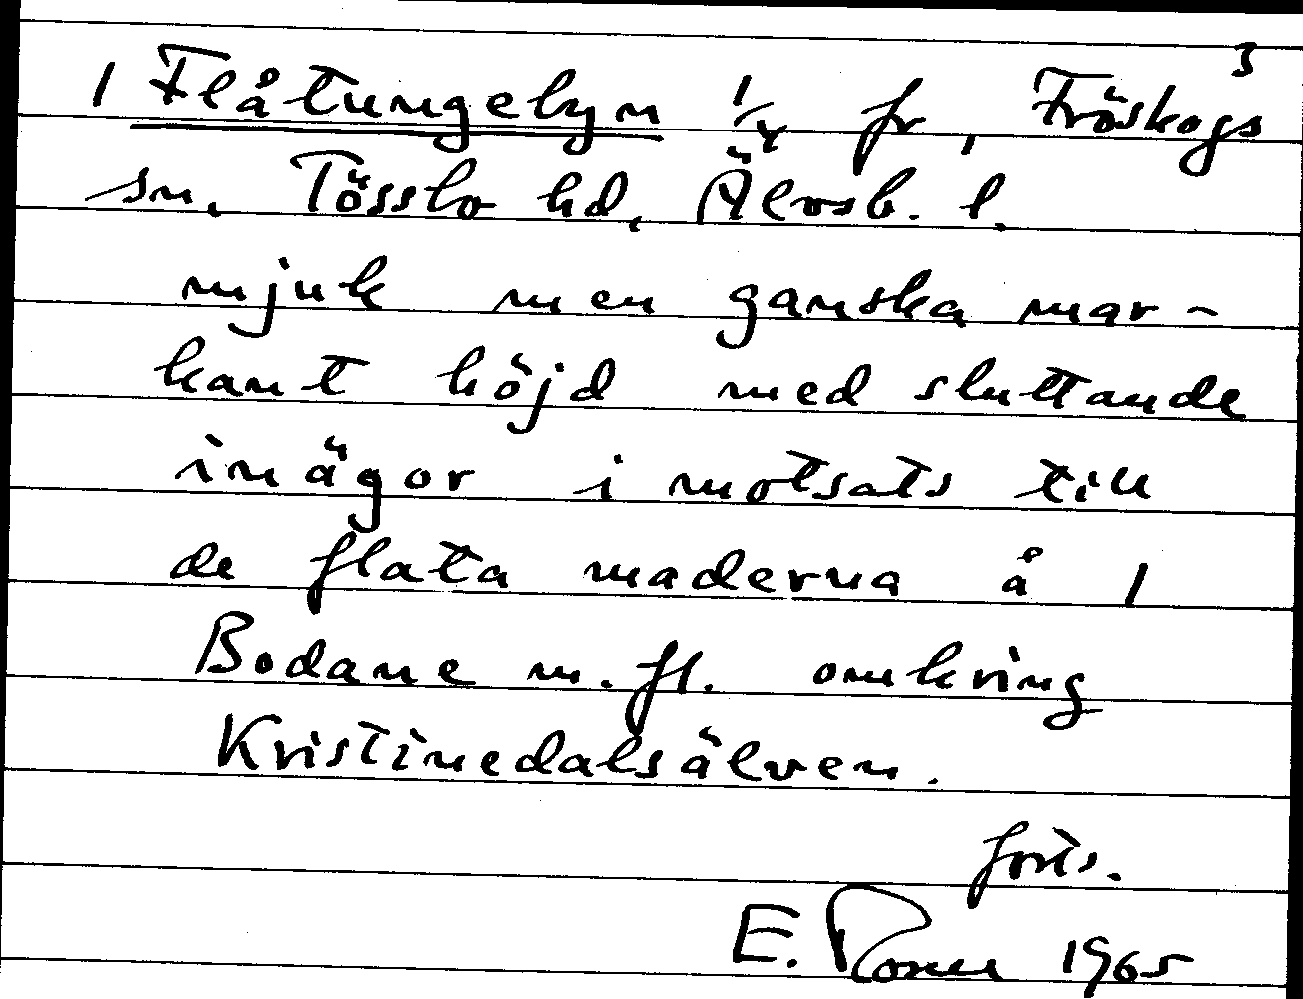 3
1 Flåtungebyn 1/4 fr, Fröskogs
sn. Tössbo hd, Älvsb. l.
mjuk men ganska mar-
kant höjd med sluttande
inägor i motsats till
de flata maderna å 1
Bodane m.fl. omkring
Kristinedalsälven.
forts.
E. Rosell 1965